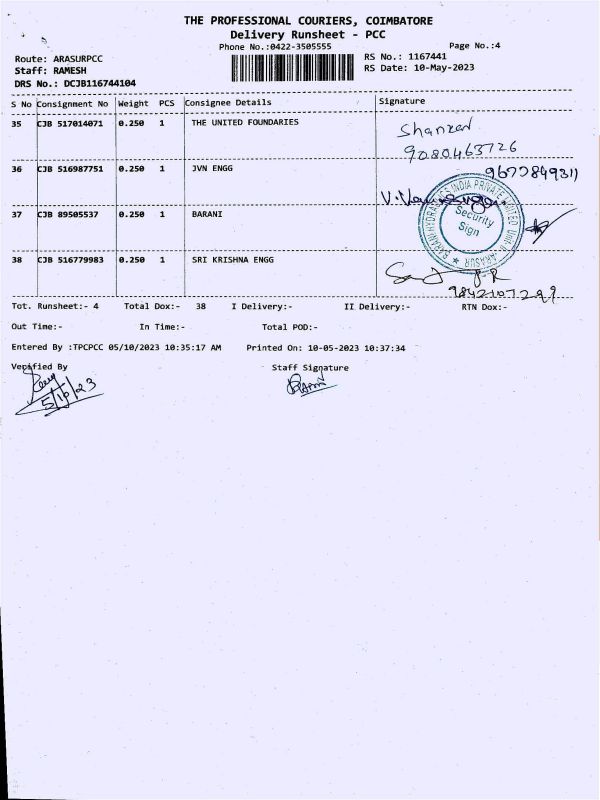 THE PROFESSIONAL COURIERS, COIMBATORE
Delivery Runsheet - PCC
Phone No.:0422-3505555 Page No.:4
Route: ARASURPCC RS No.: 1167441
Staff: RAMESH RS Date: 10-May-2023
DRS No.: DCJB116744104
S No Consignment No Weight PCS Consignee Details Signature
35 CJB 517014071 0.250 1 THE UNITED FOUNDARIES
9080463726
36 CJB 516987751 0.250 1 JVN ENGG
37 CJB 89505537 0.250 1 BARANI
BARANI HYDRAULICS INDIA PRIVATE LIMITED Unit-II, ARASUR
Security
Sign
38 CJB 516779983 0.250 1 SRI KRISHNA ENGG
Tot. Runsheet:- 4 Total Dox:- 38 I Delivery:- II Delivery:- RTN Dox:-
Out Time:- In Time:- Total POD:-
Entered By :TPCPCC 05/10/2023 10:35:17 AM Printed On: 10-05-2023 10:37:34
Verified By Staff Signature
5/10/23